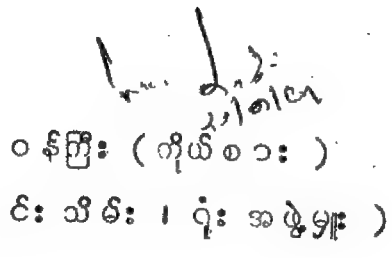 ဝန်ကြီး (ကိုယ်စား)
င်းသိမ်း၊ ရုံးအဖွဲ့မှူး)